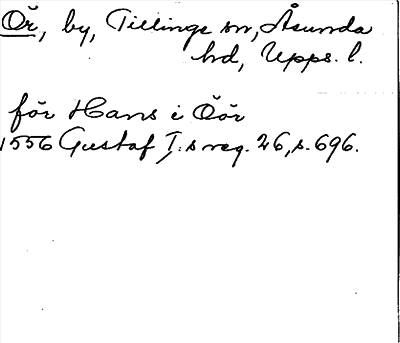 Ör, by, Tillinge sn, Åsunda
hd, Upps. l.
för Hans i Öör
1556 Gustaf I:s reg. 26, s. 696.